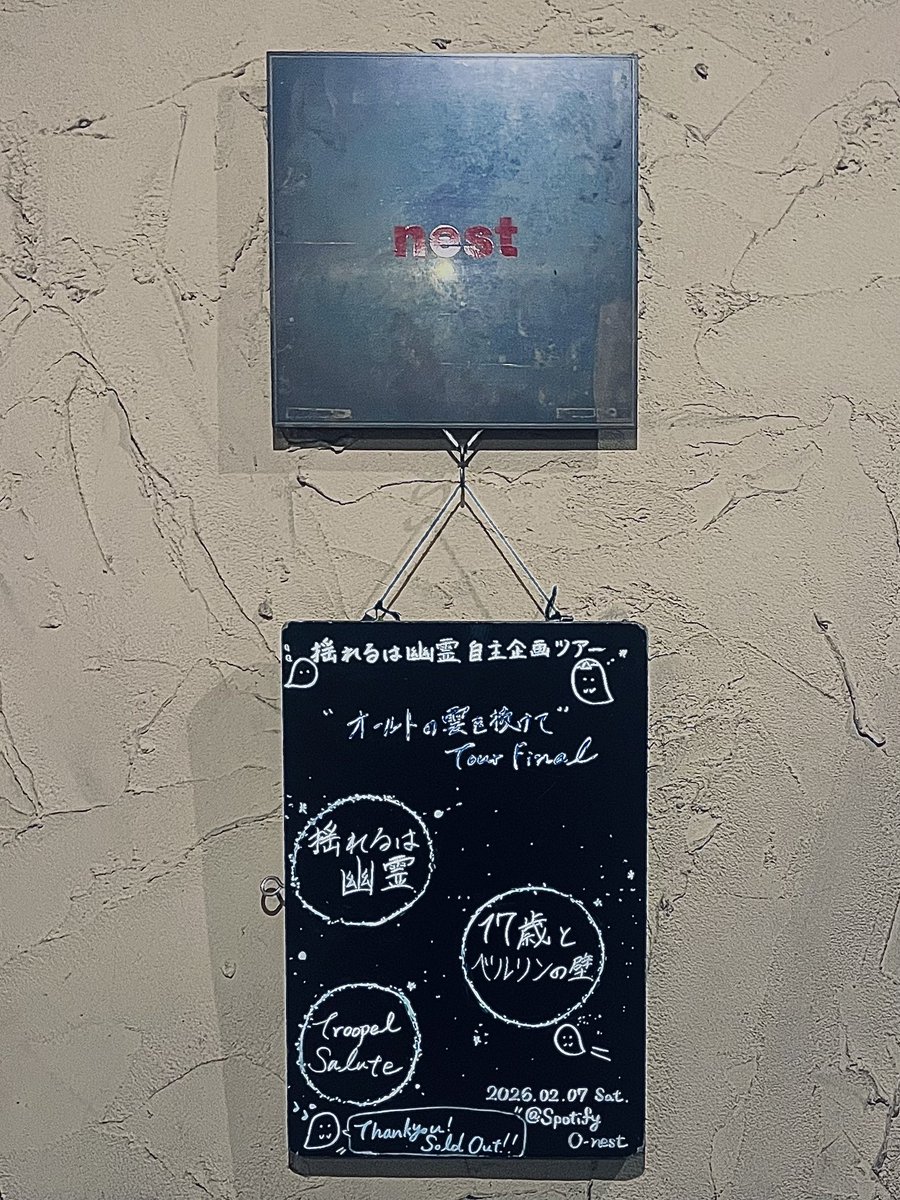 nest
揺れるは幽霊 自主企画ツアー
"オールトの雲を抜けて"
Tour Final
揺れるは
幽霊
17歳と
ベルリンの壁
Troopel
Salute
2026.02.07 Sat.
@Spotify
O-nest
Thankyou!
Sold Out!!